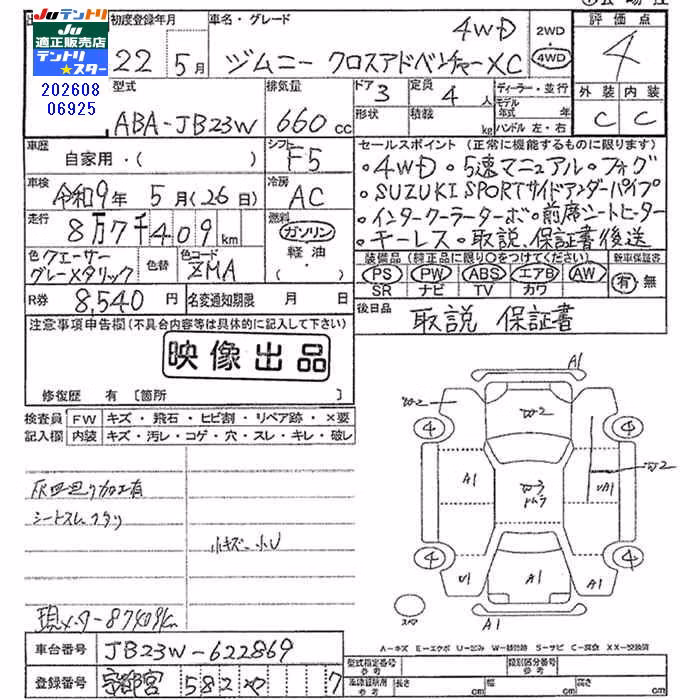 JUテントリ
JU
適正販売店
テントリ
☆スター
202608
06925
初度登録年月
22 5月
車名・グレード
4WD
ジムニー クロスアドベンチャーXC
2WD
4WD
評価点
4
型式
ABA-JB23W
排気量
660cc
ドア 3
形状
定員 4人
積載 kg
ディーラー・並行
モデル年式 年
ハンドル 左・右
外装 内装
C C
車歴
自家用・( )
シフト
F5
車検
令和9年 5月(26日)
冷房
AC
走行
8万7千409km
燃料
ガソリン
軽油・
色 クエーサーグレーメタリック
色替
色コード
ZMA
R券 8,540円
名変通知期限 月 日
セールスポイント(正常に機能するものに限ります)
・4WD・5速マニュアル・フォグ
・SUZUKI SPORTサイドアンダーパイプ
・インタークーラーターボ・前席シートヒーター
・キーレス・取説、保証書後送
装備品(純正品に限り○をつけてください)
新車保証書
PS PW ABS エアB AW
SR ナビ TV カワ
有・無
後日品
取説 保証書
注意事項申告欄(不具合内容等は具体的に記入して下さい)
映像出品
修復歴 有〔箇所 〕
検査員記入欄
FW キズ・飛石・ヒビ割・リペア跡・×要
内装 キズ・汚レ・コゲ・穴・スレ・キレ・破レ
灰皿廻り加工有
シートスレ
小キズ・小U
現メーター87409km
A1
W-2
W-2
4
4
A1
W3
W2
UA1
4
4
U1
A1
A1
A1
A-キズ E-エクボ U-凹み S-サビ C-腐食 XX-交換済
車台番号 JB23W-622869
登録番号 宇都宮 582 7
型式指定番号 参考
類別区分番号 参考
参考 長さ cm 幅 cm 高さ cm